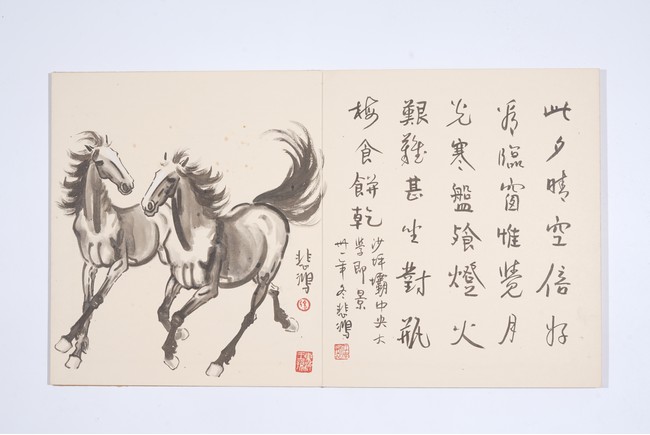 此夕晴空倍好
看臨窗惟覺月
光寒盤飧燈火
艱難甚坐對瓶
梅食餅乾
沙坪壩中央大
學即景
卅一年冬悲鴻
悲鴻